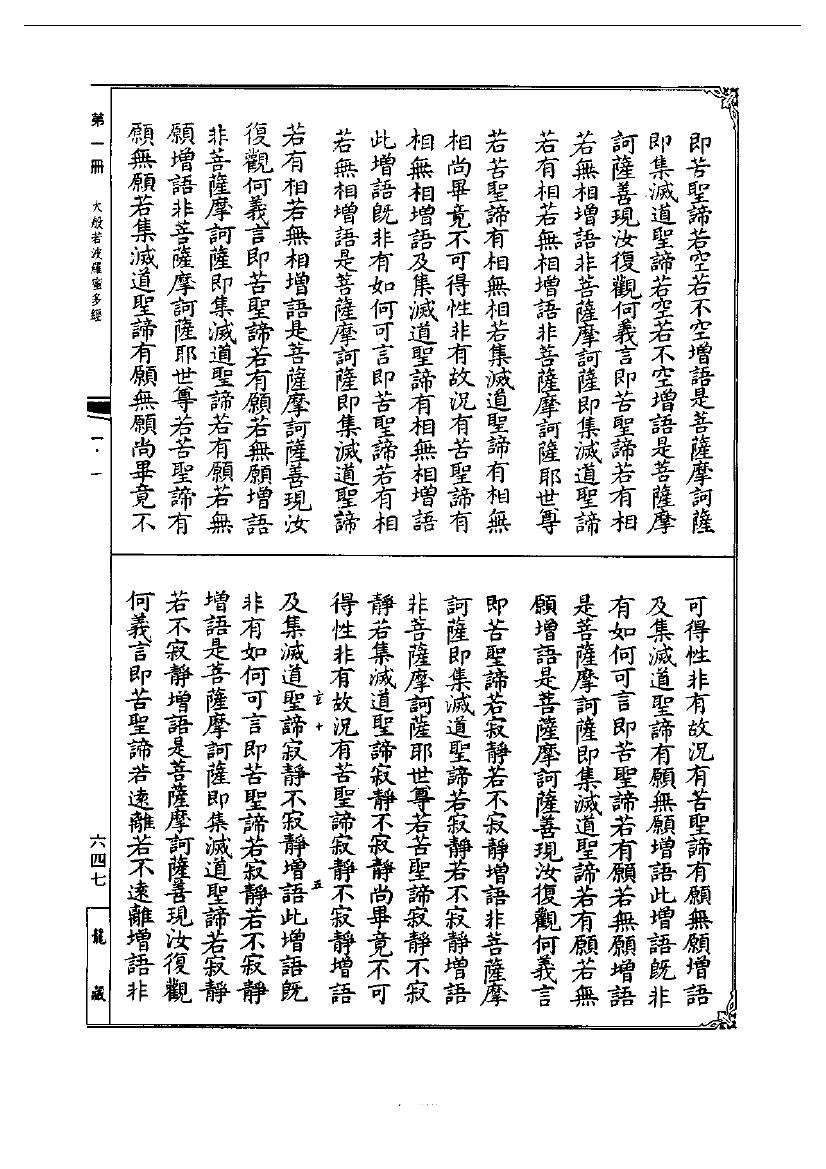 即苦聖諦若空若不空增語是菩薩摩訶薩
即集滅道聖諦若空若不空增語是菩薩摩
訶薩善現汝復觀何義言即苦聖諦若有相
若無相增語非菩薩摩訶薩即集滅道聖諦
若有相若無相增語非菩薩摩訶薩耶世尊
若苦聖諦有相無相若集滅道聖諦有相無
相尚畢竟不可得性非有故況有苦聖諦有
相無相增語及集滅道聖諦有相無相增語
此增語既非有如何可言即苦聖諦若有相
若無相增語是菩薩摩訶薩即集滅道聖諦
若有相若無相增語是菩薩摩訶薩善現汝
復觀何義言即苦聖諦若有願若無願增語
非菩薩摩訶薩即集滅道聖諦若有願若無
願增語非菩薩摩訶薩耶世尊若苦聖諦有
願無願若集滅道聖諦有願無願尚畢竟不
可得性非有故況有苦聖諦有願無願增語
及集滅道聖諦有願無願增語此增語既非
有如何可言即苦聖諦若有願若無願增語
是菩薩摩訶薩即集滅道聖諦若有願若無
願增語是菩薩摩訶薩善現汝復觀何義言
即苦聖諦若寂靜若不寂靜增語非菩薩摩
訶薩即集滅道聖諦若寂靜若不寂靜增語
非菩薩摩訶薩耶世尊若苦聖諦寂靜不寂
靜若集滅道聖諦寂靜不寂靜尚畢竟不可
得性非有故況有苦聖諦寂靜不寂靜增語
玄十 五
及集滅道聖諦寂靜不寂靜增語此增語既
非有如何可言即苦聖諦若寂靜若不寂靜
增語是菩薩摩訶薩即集滅道聖諦若寂靜
若不寂靜增語是菩薩摩訶薩善現汝復觀
何義言即苦聖諦若遠離若不遠離增語非
第一冊 大般若波羅蜜多經
一·一
六四七
龍藏